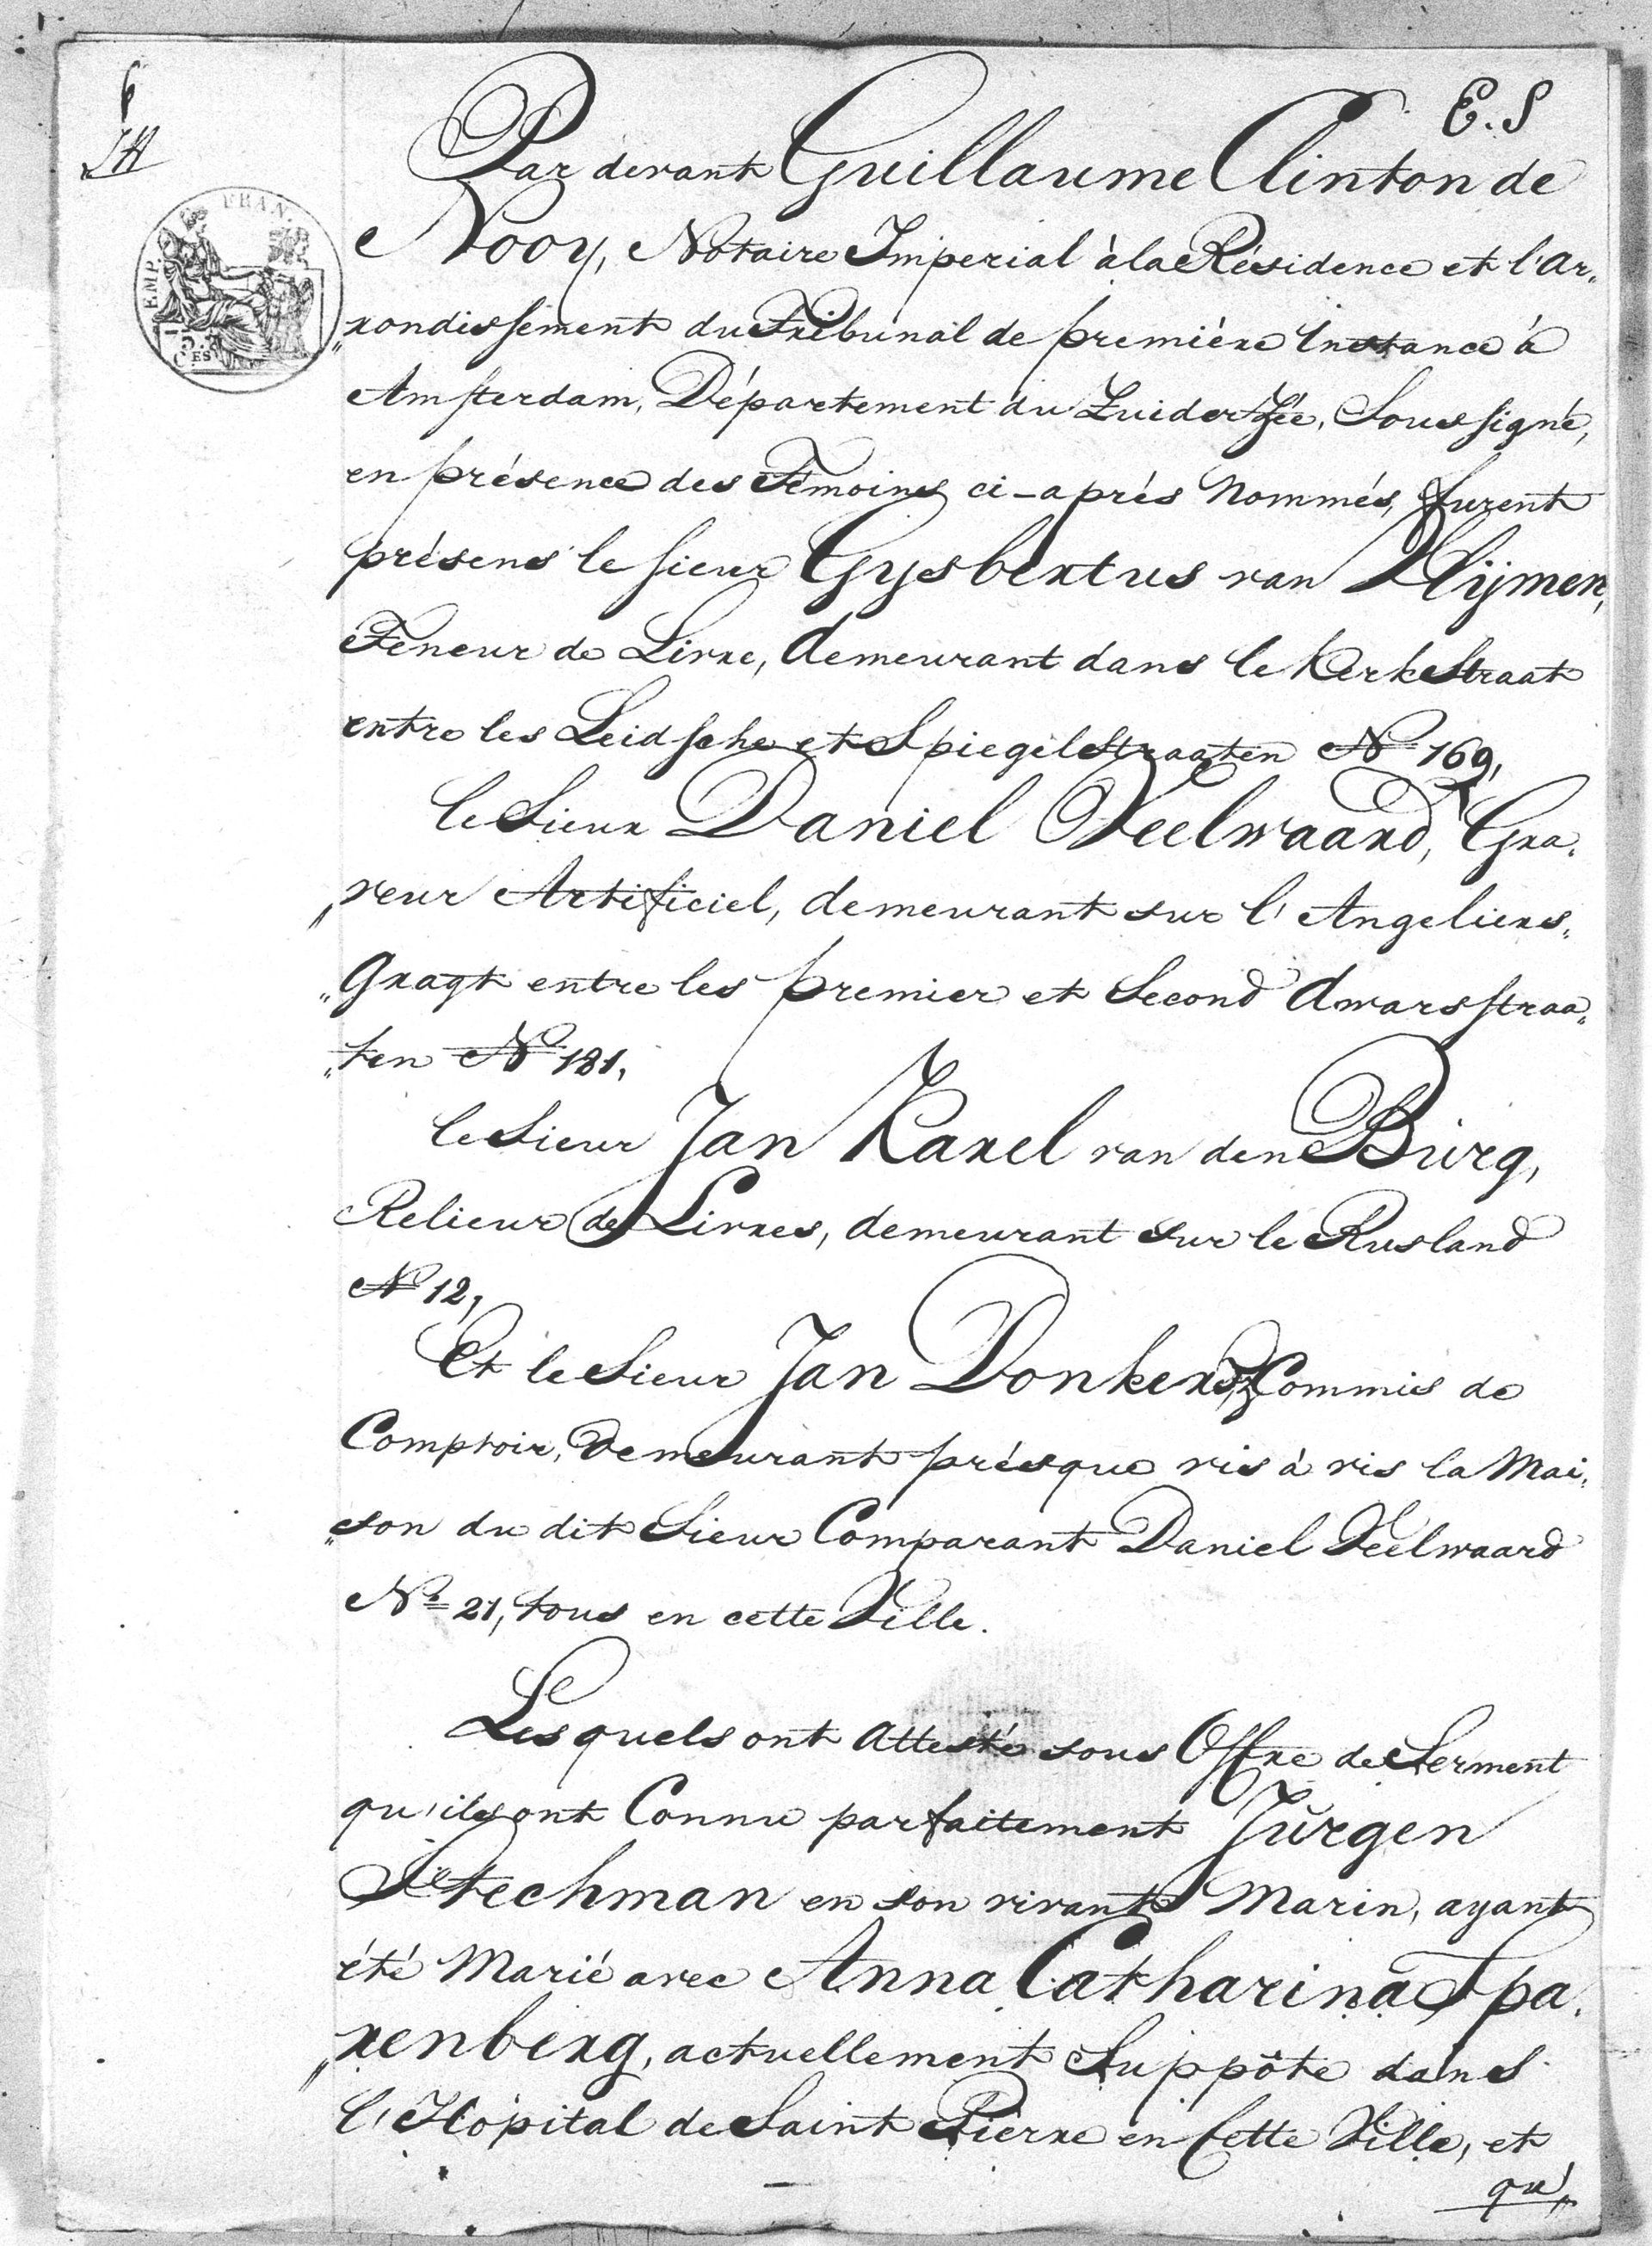 E. S
Par devant Guillaume Clinton de
Nooy, Notaire Imperial à la Résidence et l'Ar„
„rondissement du Tribunal de première Instance à
Amsterdam, Département du Zuiderzée, Soussigné,
en présence des Témoins ci-après Nommés, furent
présens le sieur Gysbertus van Wijmen,
Teneur de Livre, demeurant dans le Kerkstraat
entre les Leidsche et Spiegelstraaten N 169,
le Sieur Daniel Veelwaard, Gra„
„veur Artificiel, demeurant sur l'Angeliers„
„Gragt entre les premier et Second dwarsstraa„
„ten N 181,
le Sieur Jan Karel van den Burg,
Relieur de Livres, demeurant sur le Rusland
N 12,
Et le Sieur Jan Donkersz Commis de
Comptoir, demeurant présque vis à vis la Mai„
„son du dit Sieur Comparant Daniel Veelwaard
N 21, tous en cette Ville.
Lesquels ont attesté sous Offre de Serment
qu'ils ont Connu parfaitement Jürgen
Stechman en son vivant Marin, ayant
été Marié avec Anna Catharina Spa„
„renberg, actuellement Suppôte dans
l'Hôpital de Saint Pierre en Cette Ville, et
qu'„
EMP. FRAN.
CES